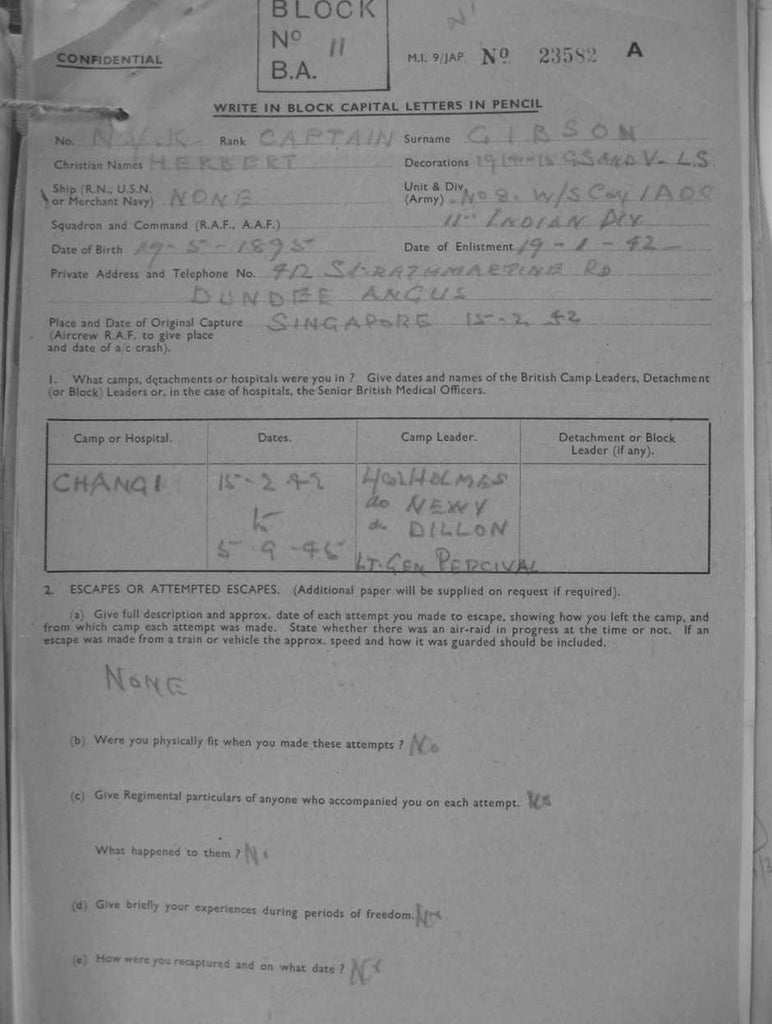 BLOCK
Nº 11
B.A.
CONFIDENTIAL
M.I. 9/JAP. Nº 23582 A
WRITE IN BLOCK CAPITAL LETTERS IN PENCIL
No. N.Y.K. Rank CAPTAIN Surname GIBSON
Christian Names HERBERT Decorations 1914-15 GS AND V. L.S
Ship (R.N., U.S.N. or Merchant Navy) NONE Unit & Div. (Army) No 2. W/S Coy IAOC
Squadron and Command (R.A.F., A.A.F.) 11th INDIAN DIV.
Date of Birth 19-5-1895 Date of Enlistment 19-1-42
Private Address and Telephone No. 412 STRATHMARTINE RD
DUNDEE ANGUS
Place and Date of Original Capture SINGAPORE 15-2 42
(Aircrew R.A.F. to give place
and date of a/c crash).
1. What camps, detachments or hospitals were you in ? Give dates and names of the British Camp Leaders, Detachment
(or Block) Leaders or, in the case of hospitals, the Senior British Medical Officers.
Camp or Hospital. Dates. Camp Leader. Detachment or Block Leader (if any).
CHANGI 15-2 42 HOLMES
to do NEWY
do DILLON
5-9-45 LT. GEN PERCIVAL
2. ESCAPES OR ATTEMPTED ESCAPES. (Additional paper will be supplied on request if required).
(a) Give full description and approx. date of each attempt you made to escape, showing how you left the camp, and
from which camp each attempt was made. State whether there was an air-raid in progress at the time or not. If an
escape was made from a train or vehicle the approx. speed and how it was guarded should be included.
NONE
(b) Were you physically fit when you made these attempts ? No
(c) Give Regimental particulars of anyone who accompanied you on each attempt.
What happened to them ?
(d) Give briefly your experiences during periods of freedom.
(e) How were you recaptured and on what date ?